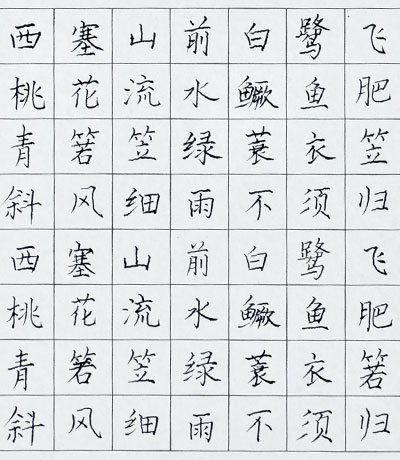 西塞山前白鹭飞
桃花流水鳜鱼肥
青箬笠绿蓑衣笠
斜风细雨不须归
西塞山前白鹭飞
桃花流水鳜鱼肥
青箬笠绿蓑衣箬
斜风细雨不须归